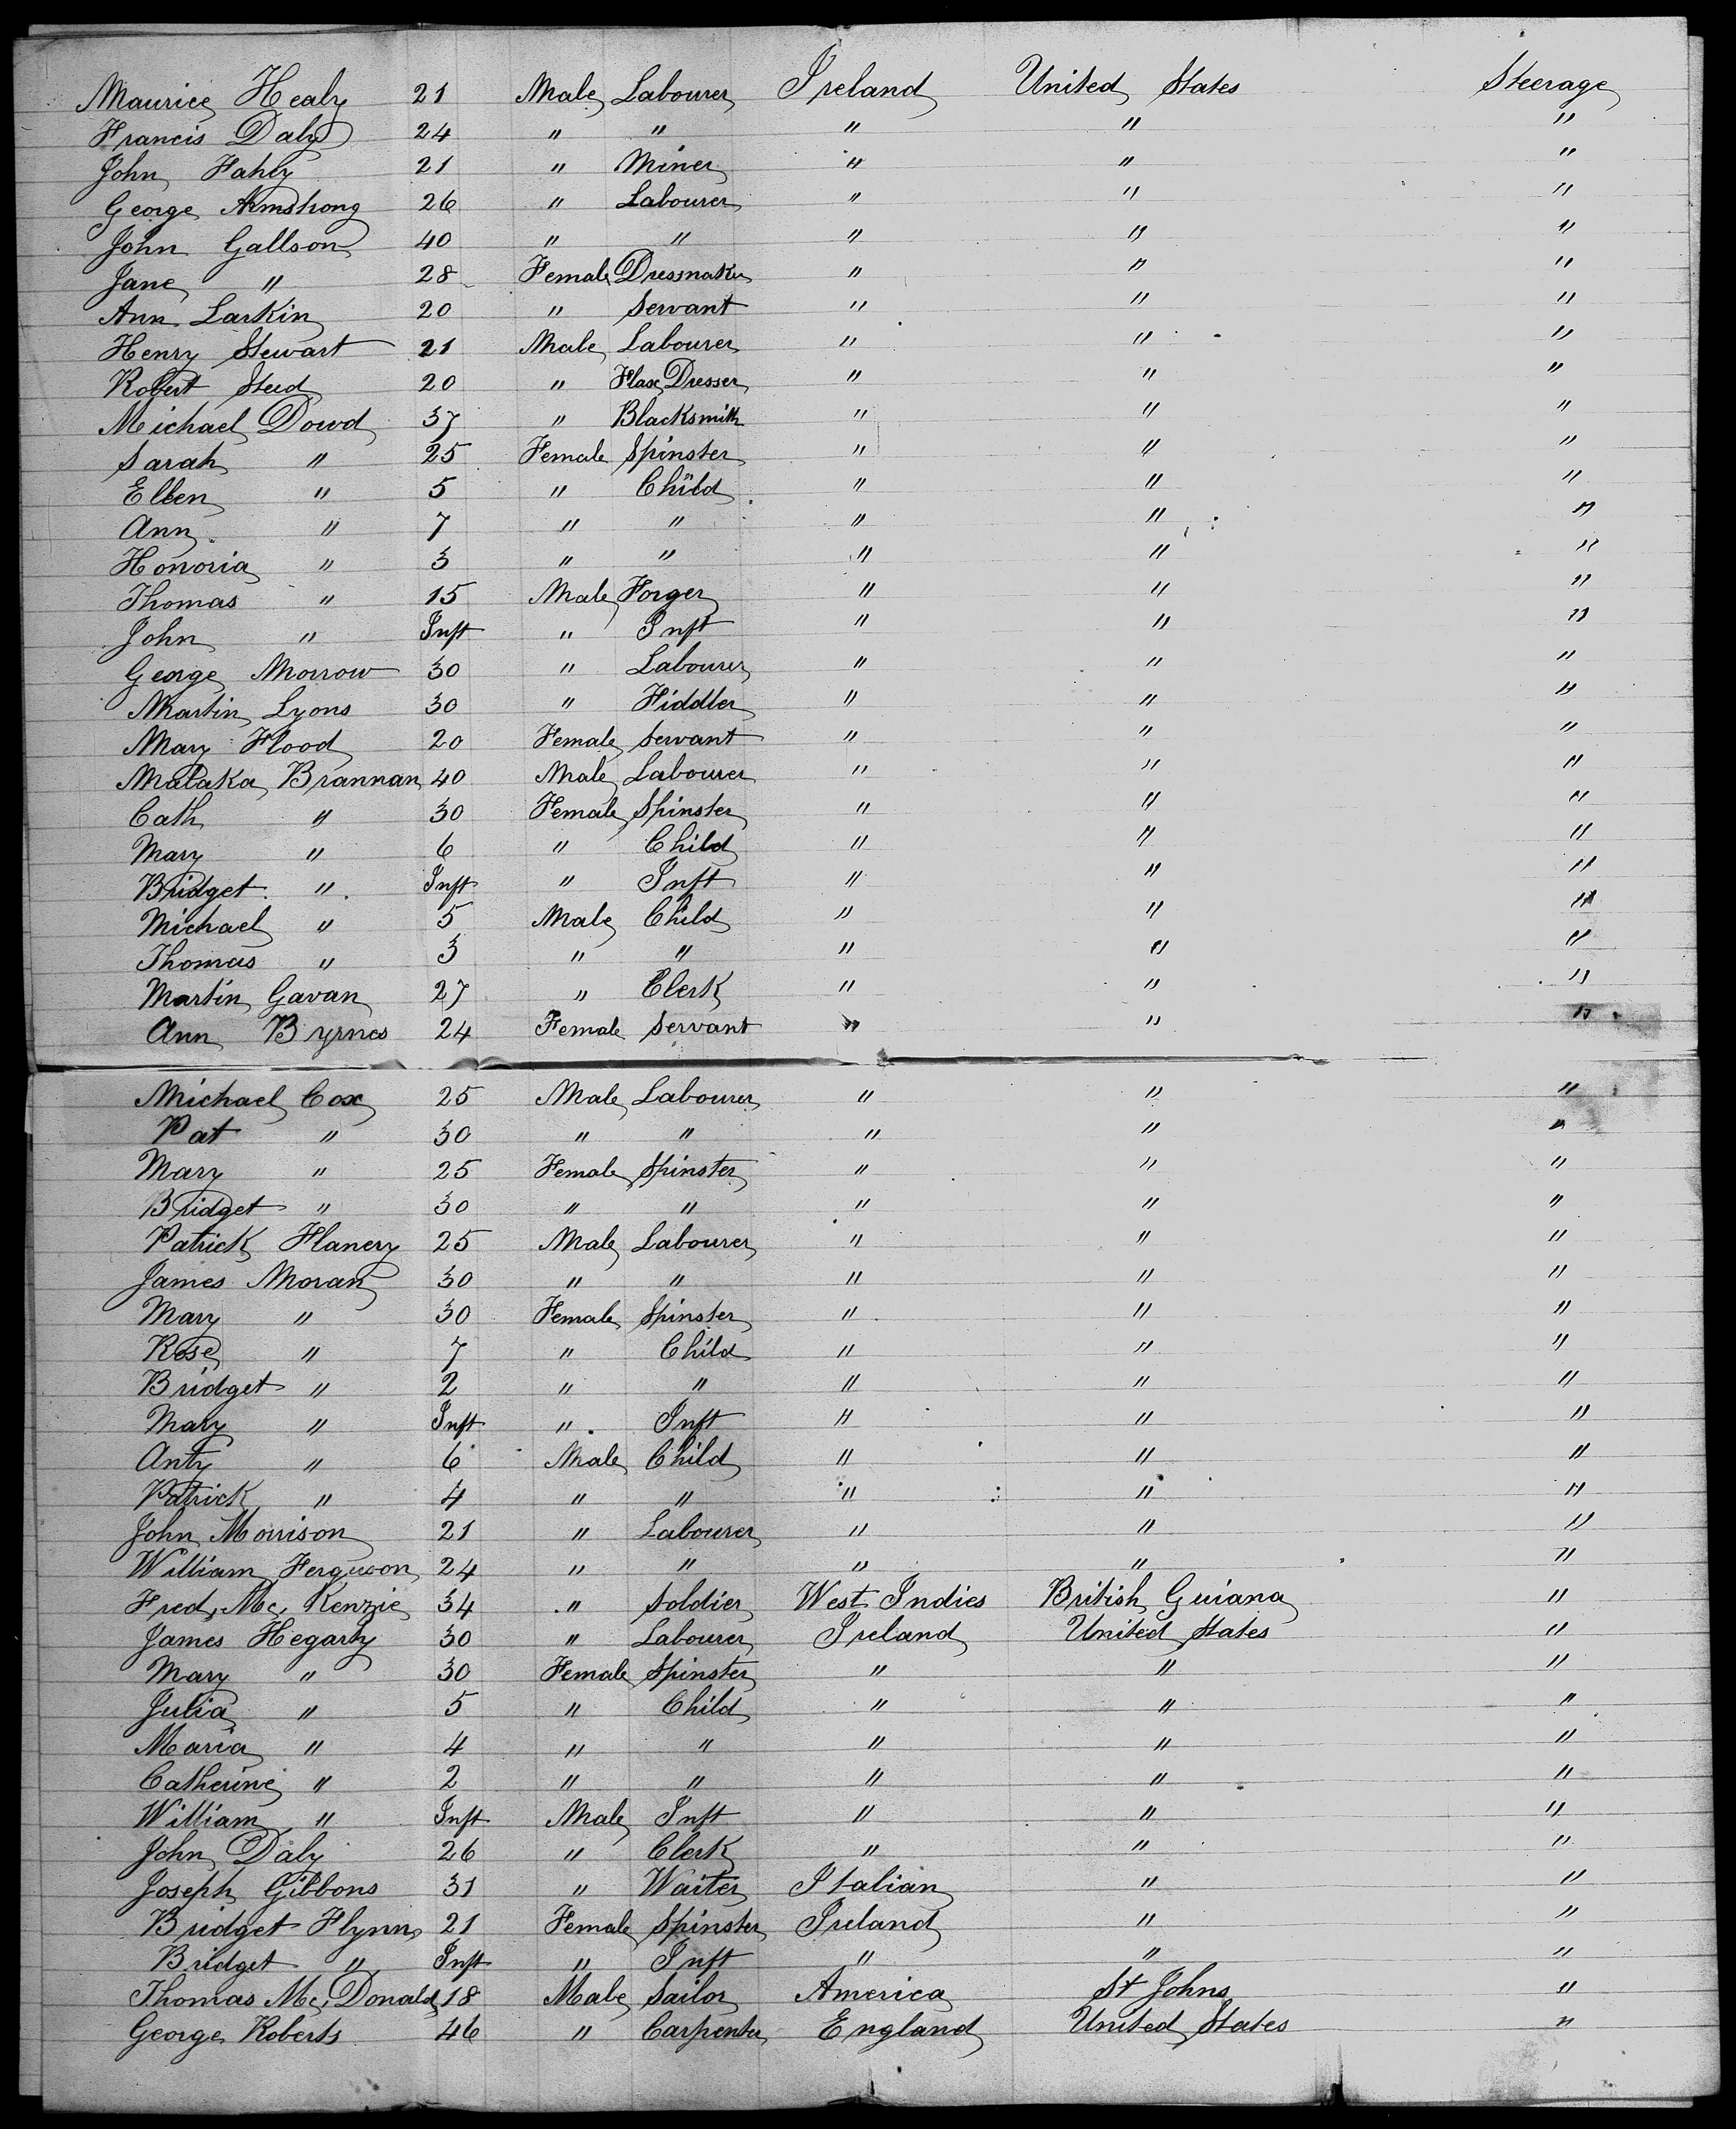 Maurice Healy 21 Male Labourer Ireland United States Steerage
Francis Daly 24 " " " " "
John Fahly 21 " Miner " " "
George Armstrong 26 " Labourer " " "
John Gallson 40 " " " " "
Jane " 28 Female Dressmaker " " "
Ann Larkin 20 " Servant " " "
Henry Stewart 21 Male Labourer " " "
Robert Steed 20 " Flax Dresser " " "
Michael Dowd 37 " Blacksmith " " "
Sarah " 25 Female Spinster " " "
Ellen " 5 " Child " " "
Ann " 7 " " " " "
Honoria " 3 " " " " "
Thomas " 15 Male Forger " " "
John " Inft " Inft " " "
George Morrow 30 " Labourer " " "
Martin Lyons 30 " Fiddler " " "
Mary Flood 20 Female Servant " " "
Malaka Brannan 40 Male Labourer " " "
Cath " 30 Female Spinster " " "
Mary " 6 " Child " " "
Bridget " Inft " Inft " " "
Michael " 5 Male Child " " "
Thomas " 3 " " " " "
Martin Gavan 27 " Clerk " " "
Ann Byrnes 24 Female Servant " " "
Michael Cox 25 Male Labourer " " "
Pat " 30 " " " " "
Mary " 25 Female Spinster " " "
Bridget " 30 " " " " "
Patrick Flanery 25 Male Labourer " " "
James Moran 30 " " " " "
Mary " 30 Female Spinster " " "
Rose " 7 " Child " " "
Bridget " 2 " " " " "
Mary " Inft " Inft " " "
Anty " 6 Male Child " " "
Patrick " 4 " " " " "
John Morrison 21 " Labourer " " "
William Ferguson 24 " " " " "
Fred, Mc, Kenzie 34 " Soldier West Indies British Guiana "
James Hegarty 30 " Labourer Ireland United States "
Mary " 30 Female Spinster " " "
Julia " 5 " Child " " "
Maria " 4 " " " " "
Catherine " 2 " " " " "
William " Inft Male Inft " " "
John Daly 26 " Clerk " " "
Joseph Gibbons 31 " Waiter Italian " "
Bridget Flynn 21 Female Spinster Ireland " "
Bridget " Inft " Inft " " "
Thomas Mc, Donald 18 Male Sailor America St Johns "
George Roberts 46 " Carpenter England United States "